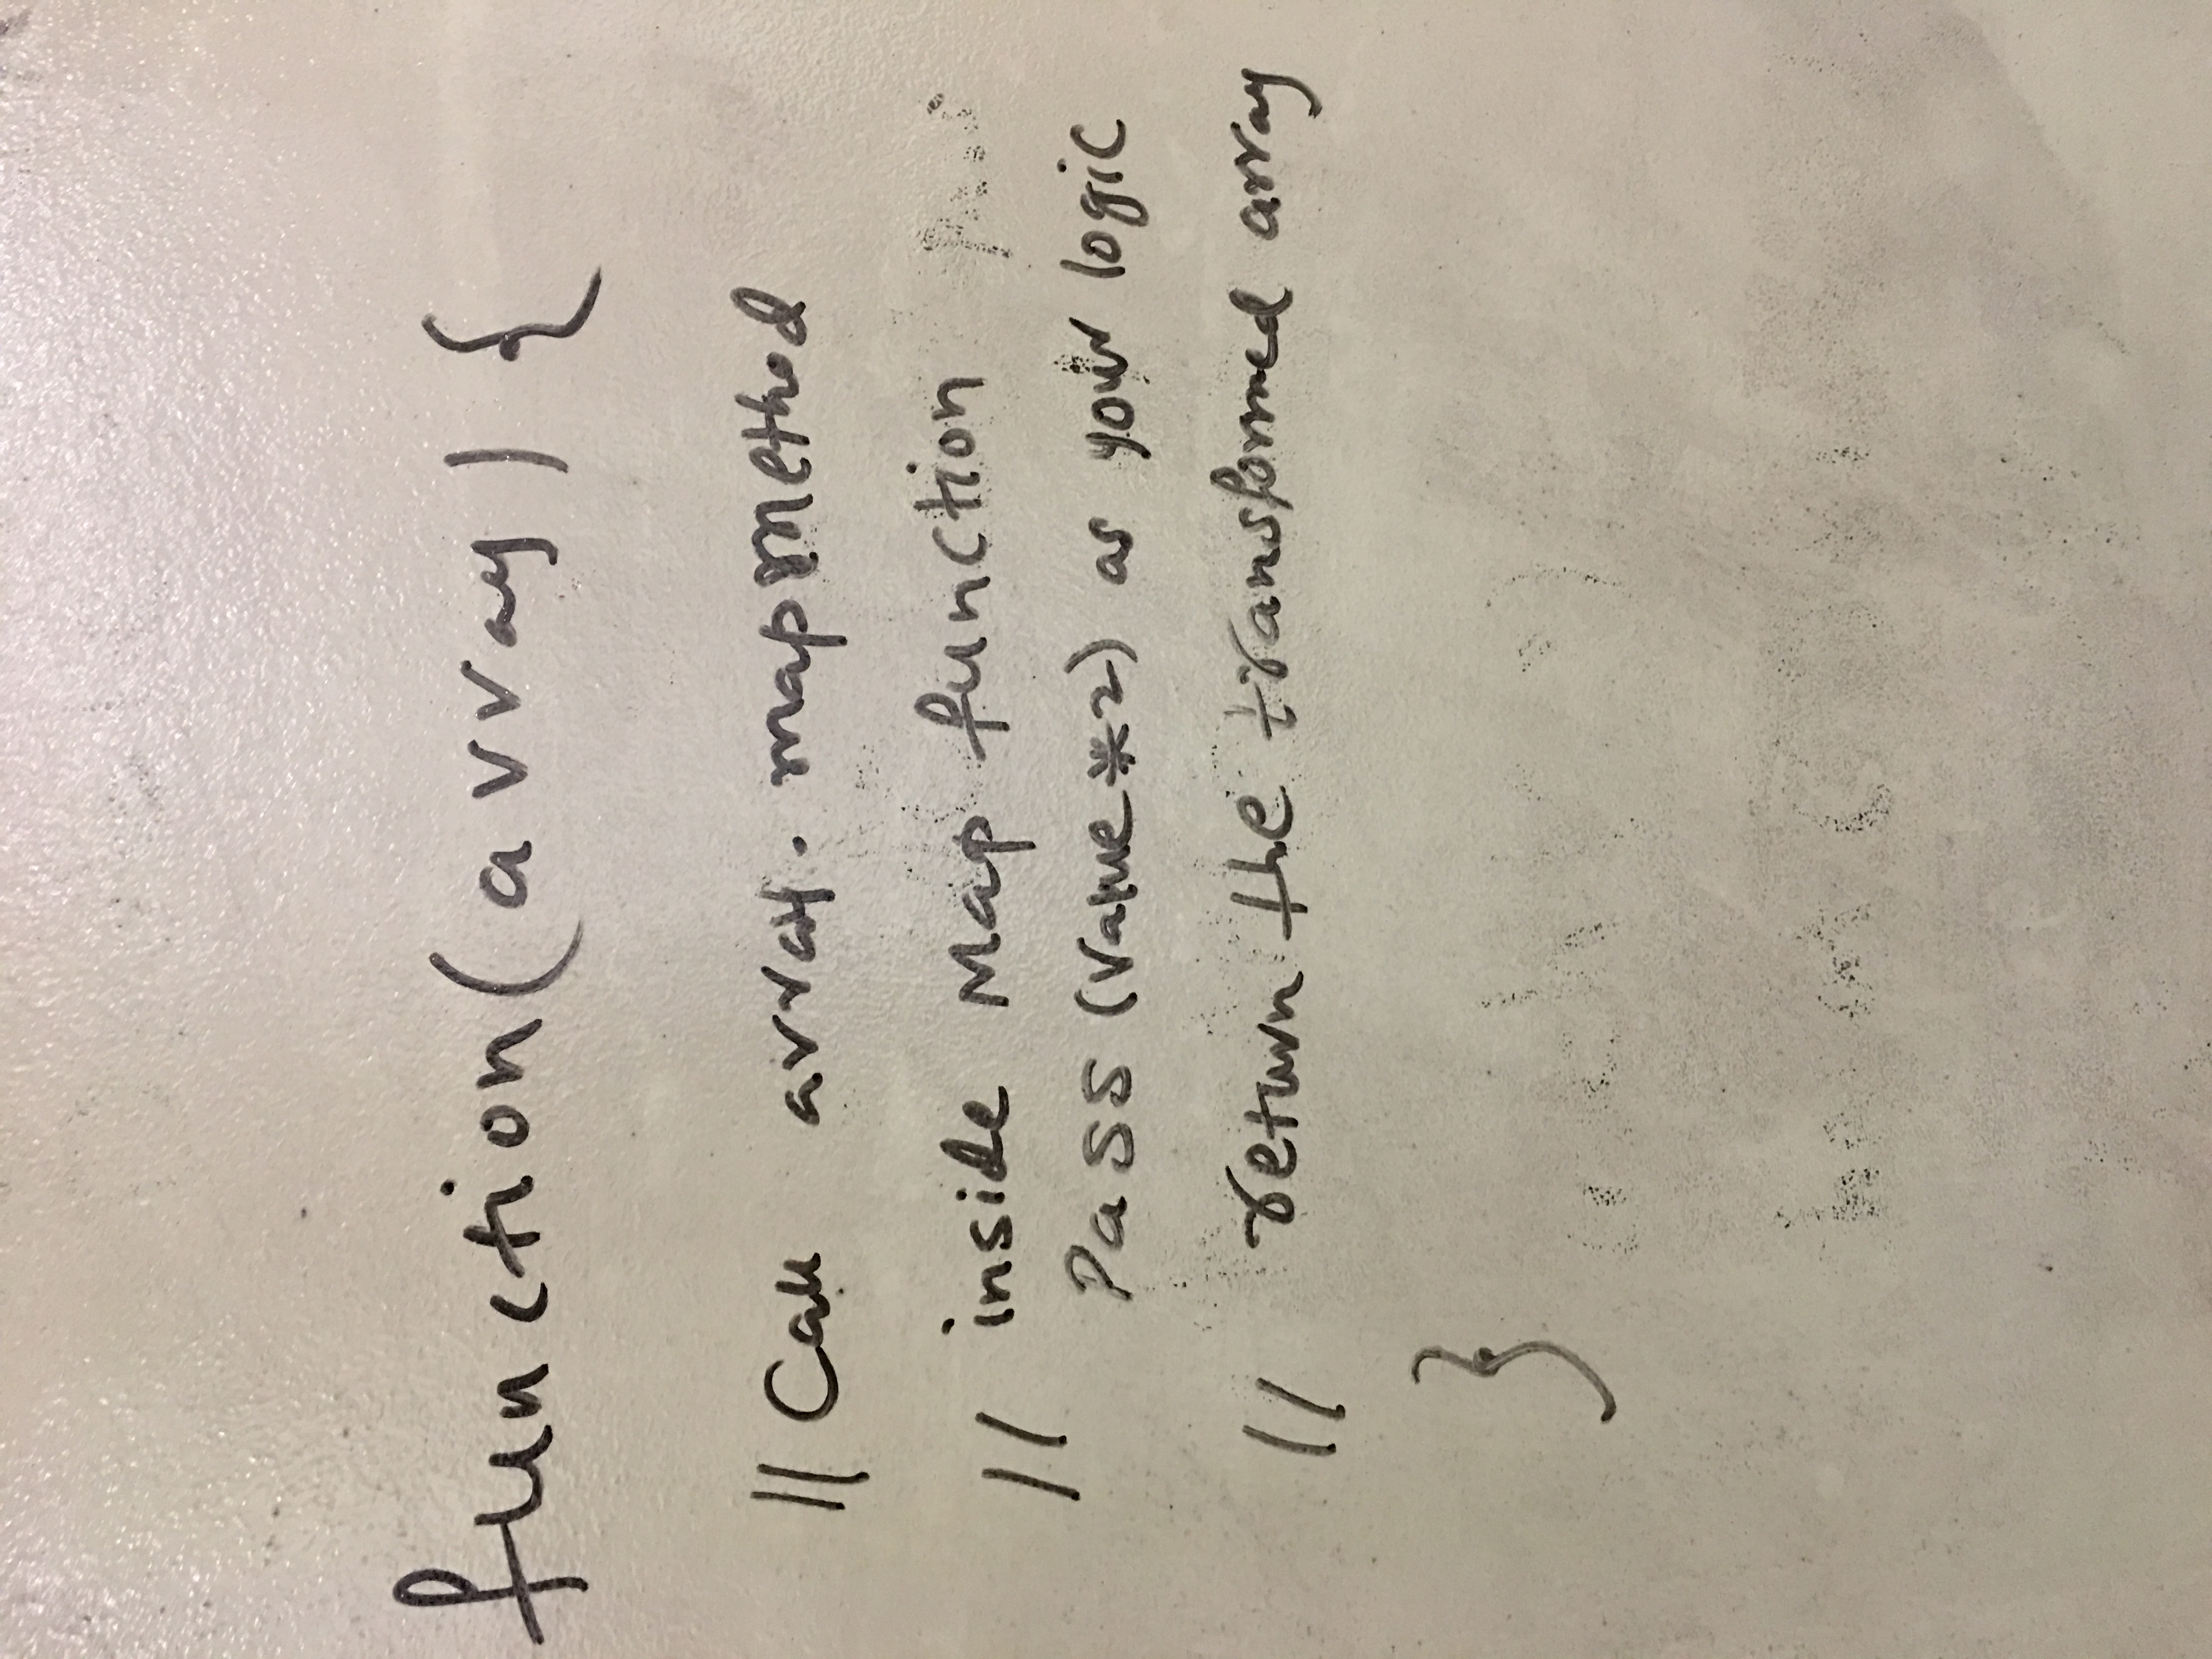 function(array) {
// Call array.mapmethod
// inside Map function
Pass (value*2) as your logic
// return the transformed array
}